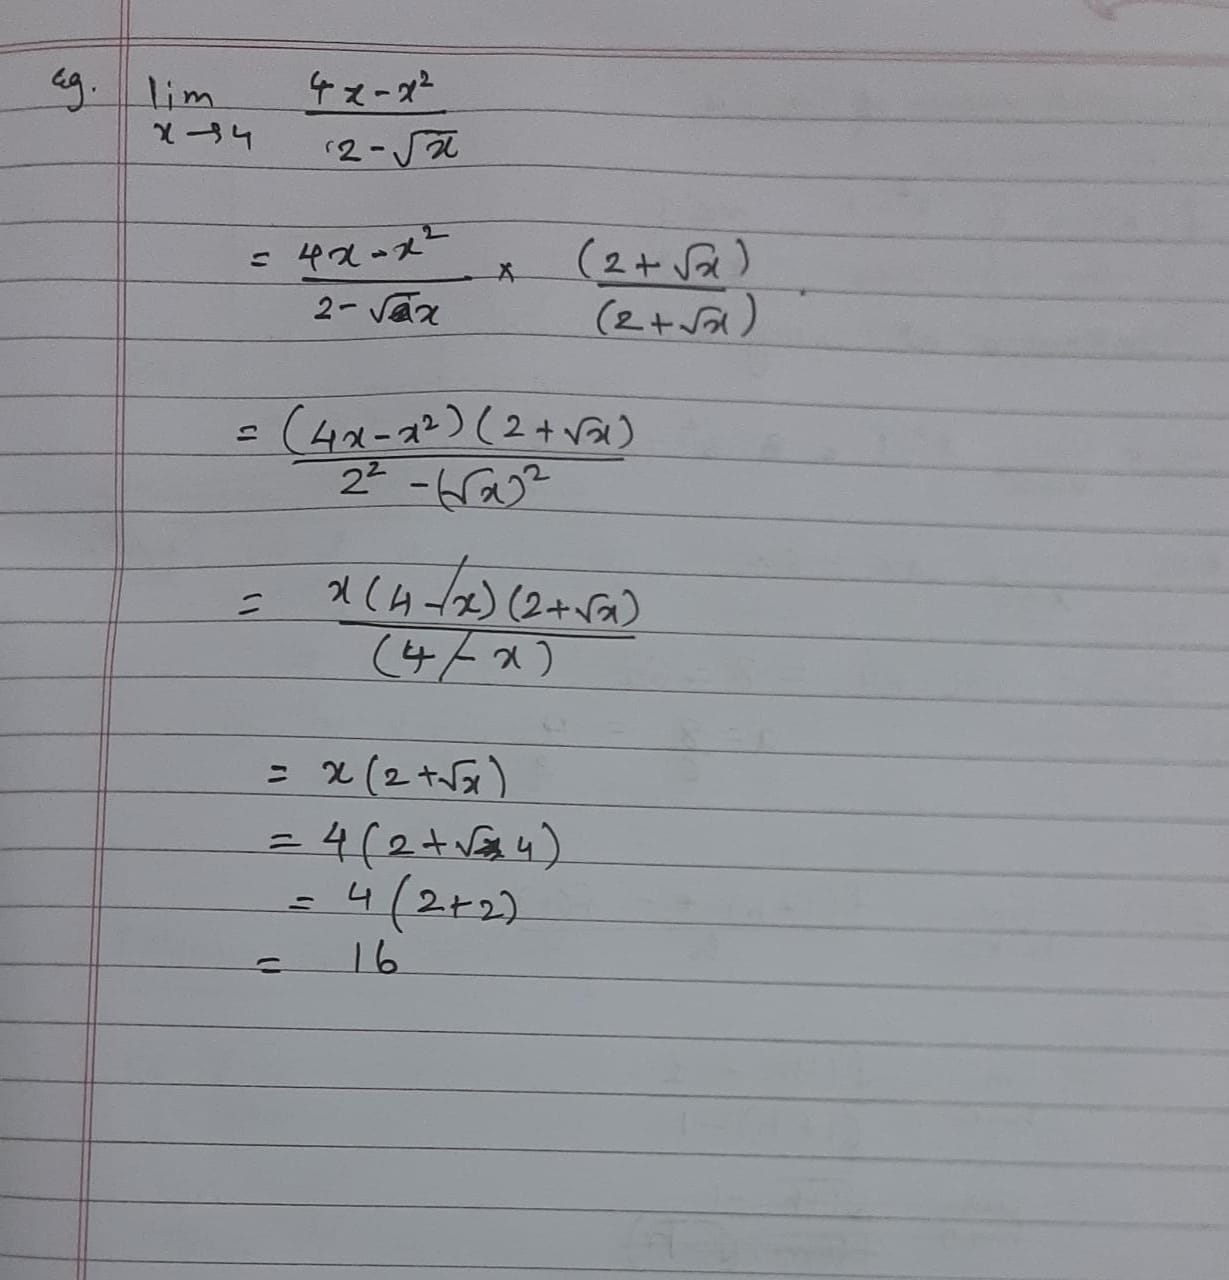 eg. lim 4x-x²
x→4 2-√x
= 4x-x² × (2+√x)
2-√x (2+√x)
= (4x-x²)(2+√x)
2² -(√x)²
= x(4-x)(2+√x)
(4-x)
= x(2+√x)
= 4(2+√4)
= 4(2+2)
= 16